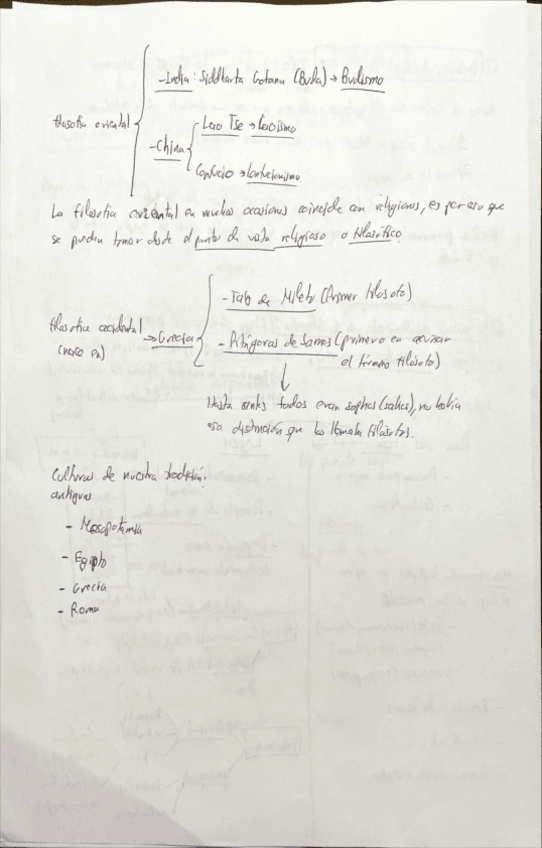 -India: Siddharta Gotama (Buda) → Budismo
filosofía oriental
-China
Lao Tse → Laoísmo
Confucio → Confucianismo
La filosofía oriental en muchas ocasiones coincide con religiones, es por eso que
se pueden tomar desde el punto de vista religioso o filosófico.
- Tales de Mileto (Primer filósofo)
filosofía occidental → Grecia
(nace en)
- Pitágoras de Samos (primero en acuñar
el término filósofo)
Hasta antes todos eran sophos (sabios), no había
esa distinción que los llamaba filósofos.
Culturas de nuestra tradición:
antiguas
- Mesopotamia
- Egipto
- Grecia
- Roma